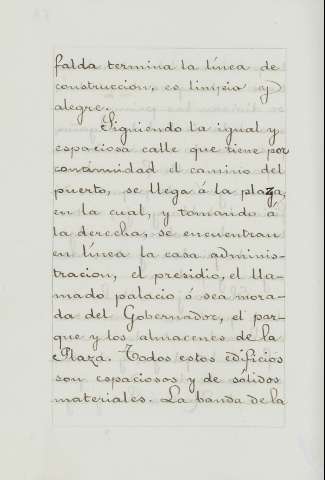 falda termina la línea de
construccion, es limpia y
alegre.
Siguiendo la igual y
espaciosa calle que tiene por
continuidad el camino del
puerto, se llega á la plaza,
en la cual, y tomando á
la derecha, se encuentran
en línea la casa adminis-
tracion, el presidio, el lla-
mado palacio ó sea mora-
da del Gobernador, el par-
que y los almacenes de la
Plaza. Todos estos edificios
son espaciosos y de sólidos
materiales. La banda de la